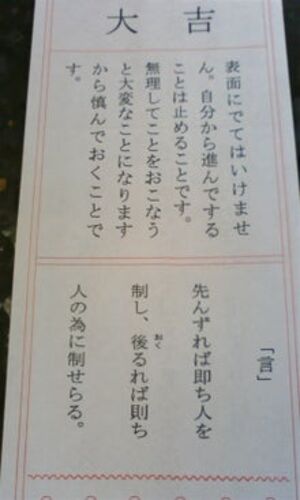 大吉
表面にでてはいけませ
ん。自分から進んでする
ことは止めることです。
無理してことをおこなう
と大変なことになります
から慎んでおくことで
す。
「言」
先んずれば即ち人を
制し、後るれば則ち
おく
人の為に制せらる。